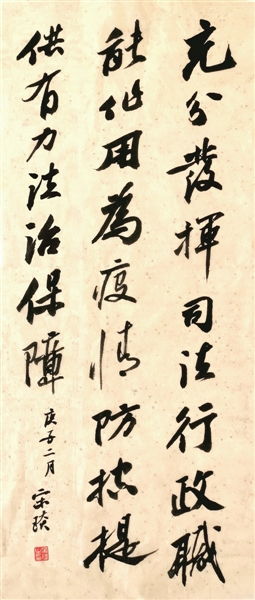 充分發揮司法行政職
能作用為疫情防控提
供有力法治保障
庚子二月 宗琰